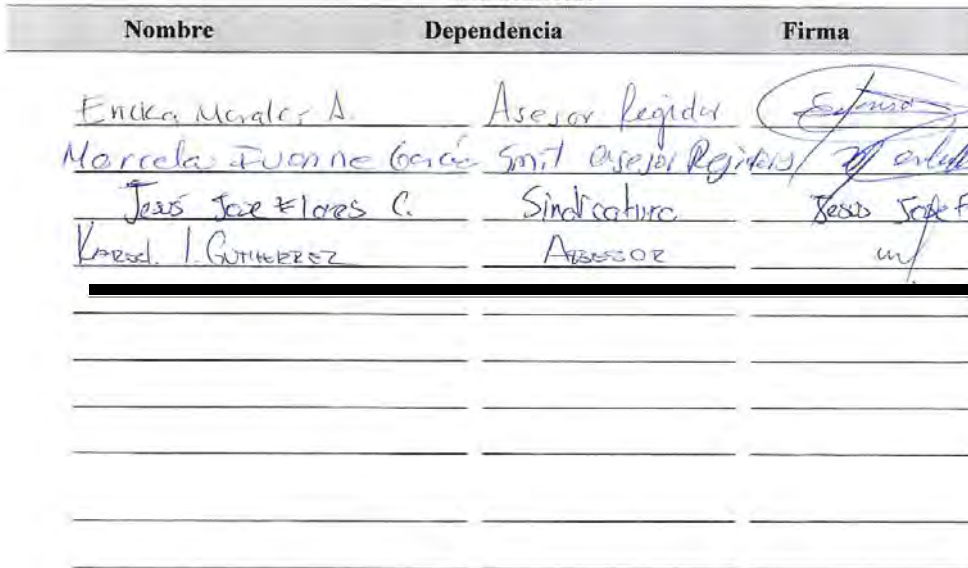 Nombre Dependencia Firma
Ericka Morales A. Asesor Regidor
Marcela Ivonne García Smit asesor
Jesús Jose Flores C. Sindicatura Jesus Jose F
I. GUTIERREZ ASESOR